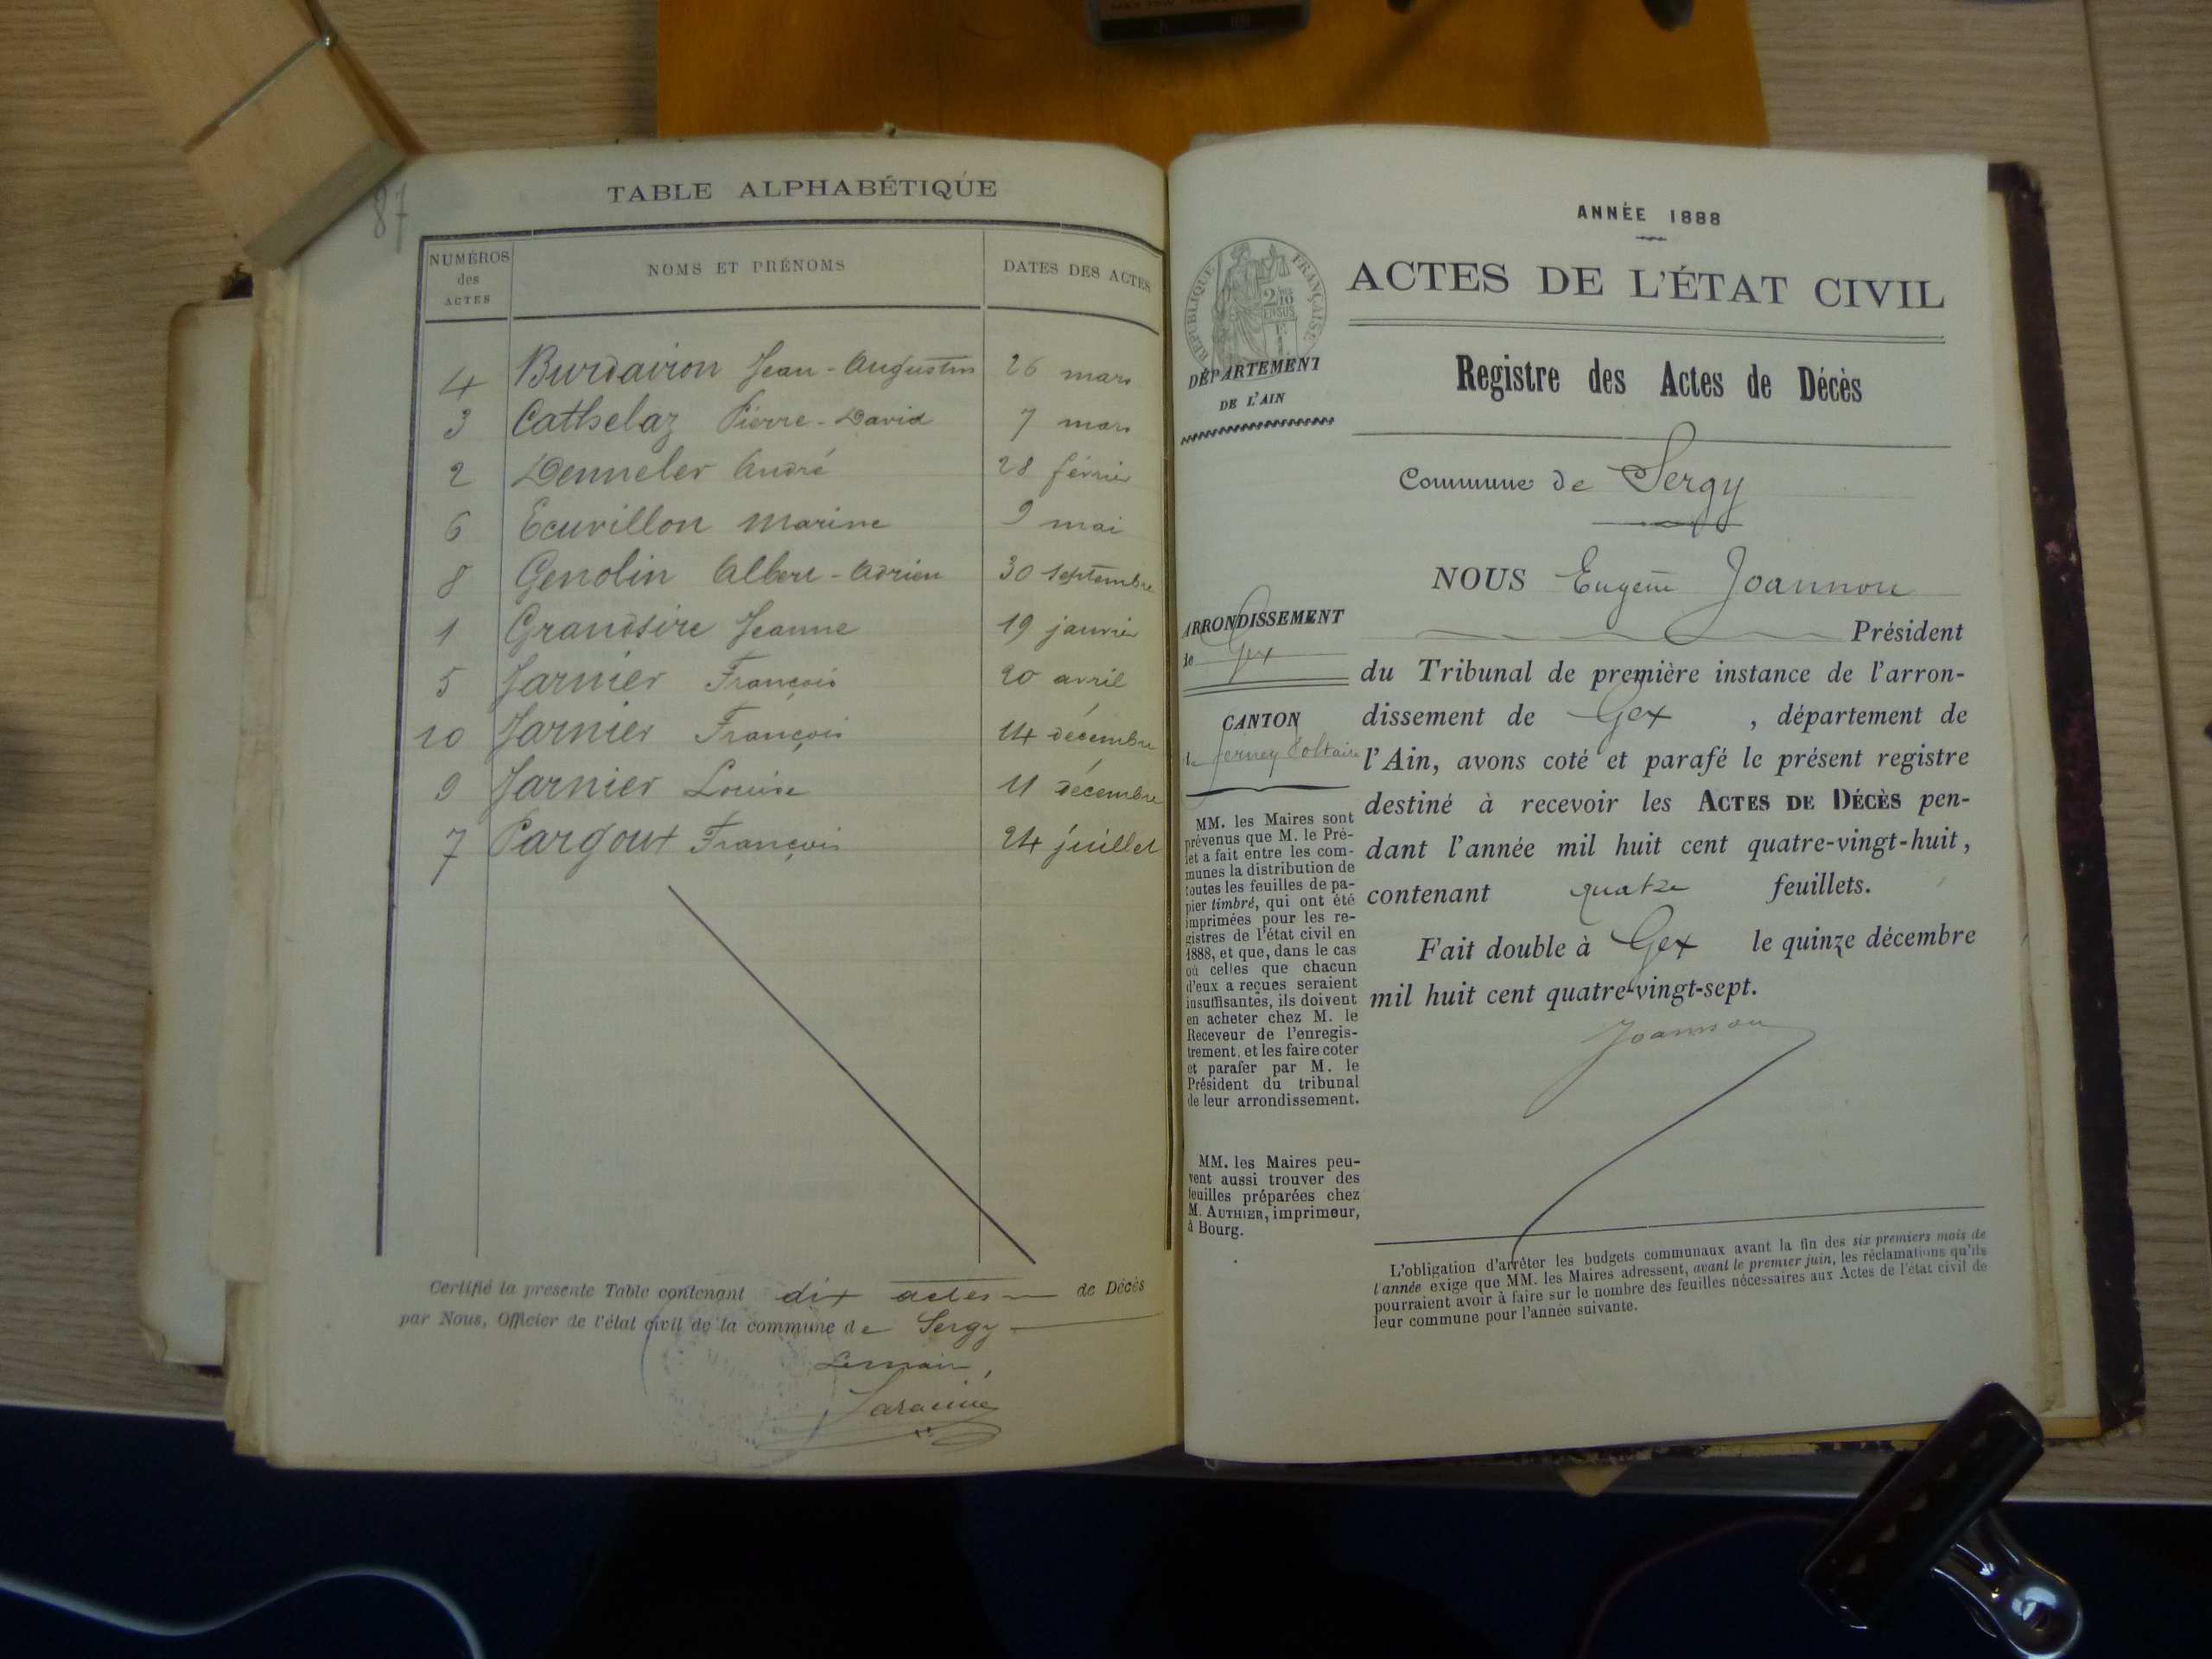 87
TABLE ALPHABÉTIQUE
NUMÉROS des ACTES NOMS ET PRÉNOMS DATES DES ACTES
4 Burdairon Jean-Augustin 26 mars
3 Cathelaz Pierre-David 7 mars
2 Denneler André 28 février
6 Ecuvillon Marine 9 mai
8 Genolin Albert-Adrien 30 septembre
1 Grandsire Jeanne 19 janvier
5 Jarnier François 20 avril
10 Jarnier François 14 décembre
9 Jarnier Louise 11 décembre
7 Pargoux François 24 juillet
Certifié la présente Table contenant dix actes de Décès
par Nous, Officier de l'état civil de la commune de Sergy
Le maire,
ANNÉE 1888
ACTES DE L'ÉTAT CIVIL
RÉPUBLIQUE FRANÇAISE
2/10 EN SUS
DÉPARTEMENT
DE L'AIN
Registre des Actes de Décès
Commune de Sergy
NOUS Eugène Joannon
Président
ARRONDISSEMENT
de Gex
CANTON
de Ferney Voltaire
du Tribunal de première instance de l'arron-
dissement de Gex, département de
l'Ain, avons coté et parafé le présent registre
destiné à recevoir les ACTES DE DÉCÈS pen-
dant l'année mil huit cent quatre-vingt-huit,
contenant quatre feuillets.
Fait double à Gex le quinze décembre
mil huit cent quatre-vingt-sept.
Joannon
MM. les Maires sont
prévenus que M. le Pré-
fet a fait entre les com-
munes la distribution de
toutes les feuilles de pa-
pier timbré, qui ont été
imprimées pour les re-
gistres de l'état civil en
1888, et que, dans le cas
où celles que chacun
d'eux a reçues seraient
insuffisantes, ils doivent
en acheter chez M. le
Receveur de l'enregis-
trement, et les faire coter
et parafer par M. le
Président du tribunal
de leur arrondissement.
MM. les Maires peu-
vent aussi trouver des
feuilles préparées chez
M. AUTHIER, imprimeur,
à Bourg.
L'obligation d'arrêter les budgets communaux avant la fin des six premiers mois de
l'année exige que MM. les Maires adressent, avant le premier juin, les réclamations qu'ils
pourraient avoir à faire sur le nombre des feuilles nécessaires aux Actes de l'état civil de
leur commune pour l'année suivante.